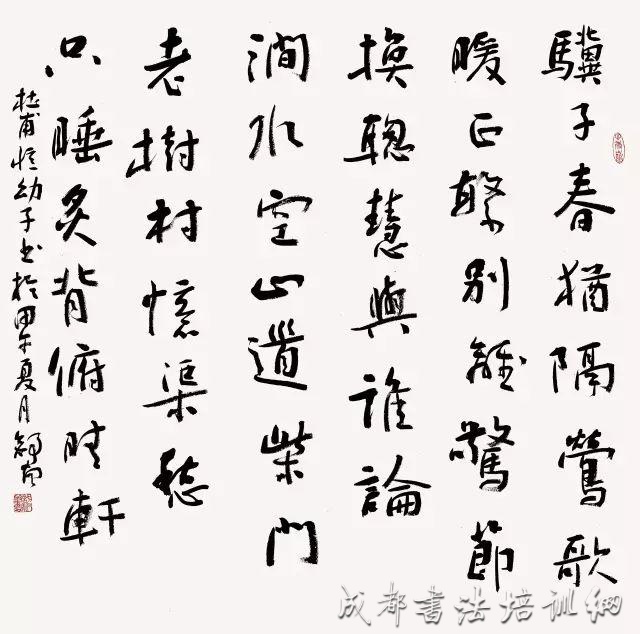 驥子春猶隔鶯歌
暖正繁別離驚節
換聰慧與誰論
澗水空山道柴門
老樹村憶渠愁
只睡炙背俯晴軒
杜甫憶幼子书於甲午夏月
成都書法培训網